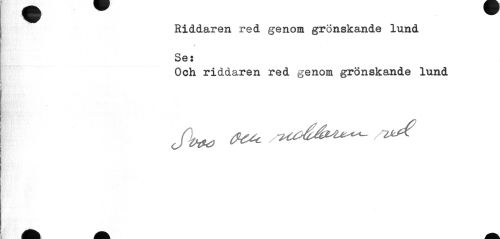 Riddaren red genom grönskande lund
Se:
Och riddaren red genom grönskande lund
och riddaren red